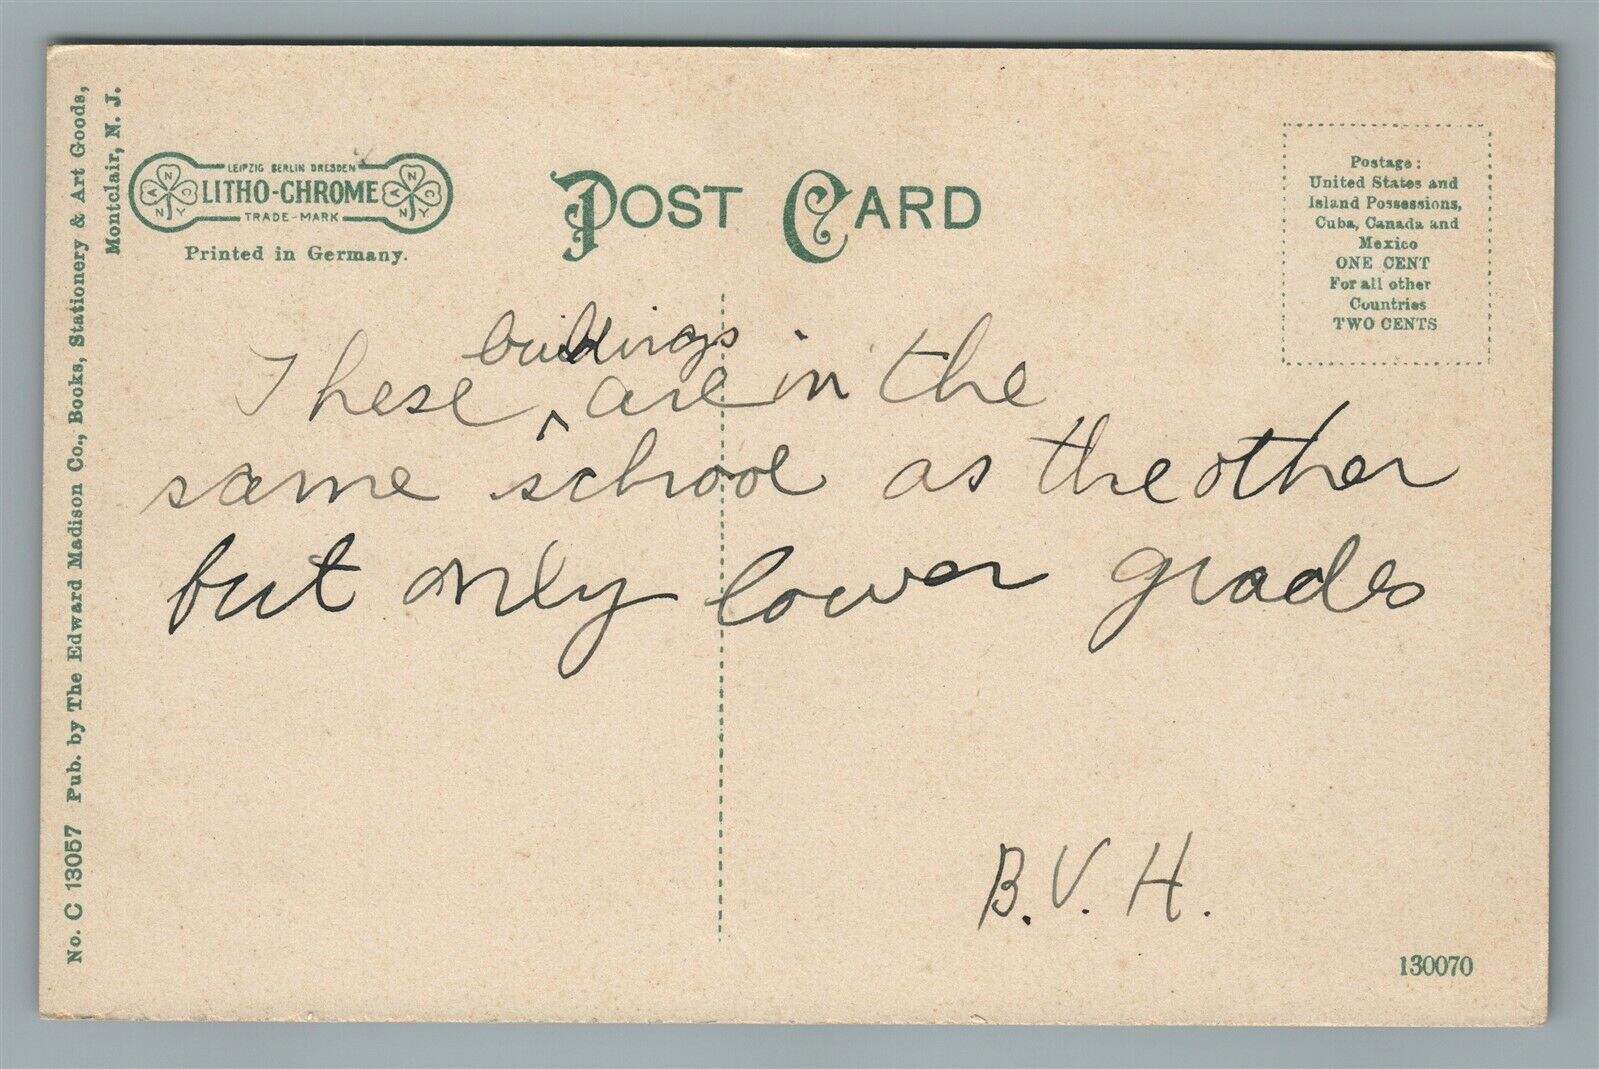 No. C 13057 Pub. by The Edward Madison Co., Books, Stationery & Art Goods,
Montclair, N. J.
LEIPZIG BERLIN DRESDEN
LITHO-CHROME
TRADE-MARK
Printed in Germany.
POST CARD
Postage:
United States and
Island Possessions,
Cuba, Canada and
Mexico
ONE CENT
For all other
Countries
TWO CENTS
buildings
These ^ are in the
same school as the other
but only lower grades
B. V. H.
130070